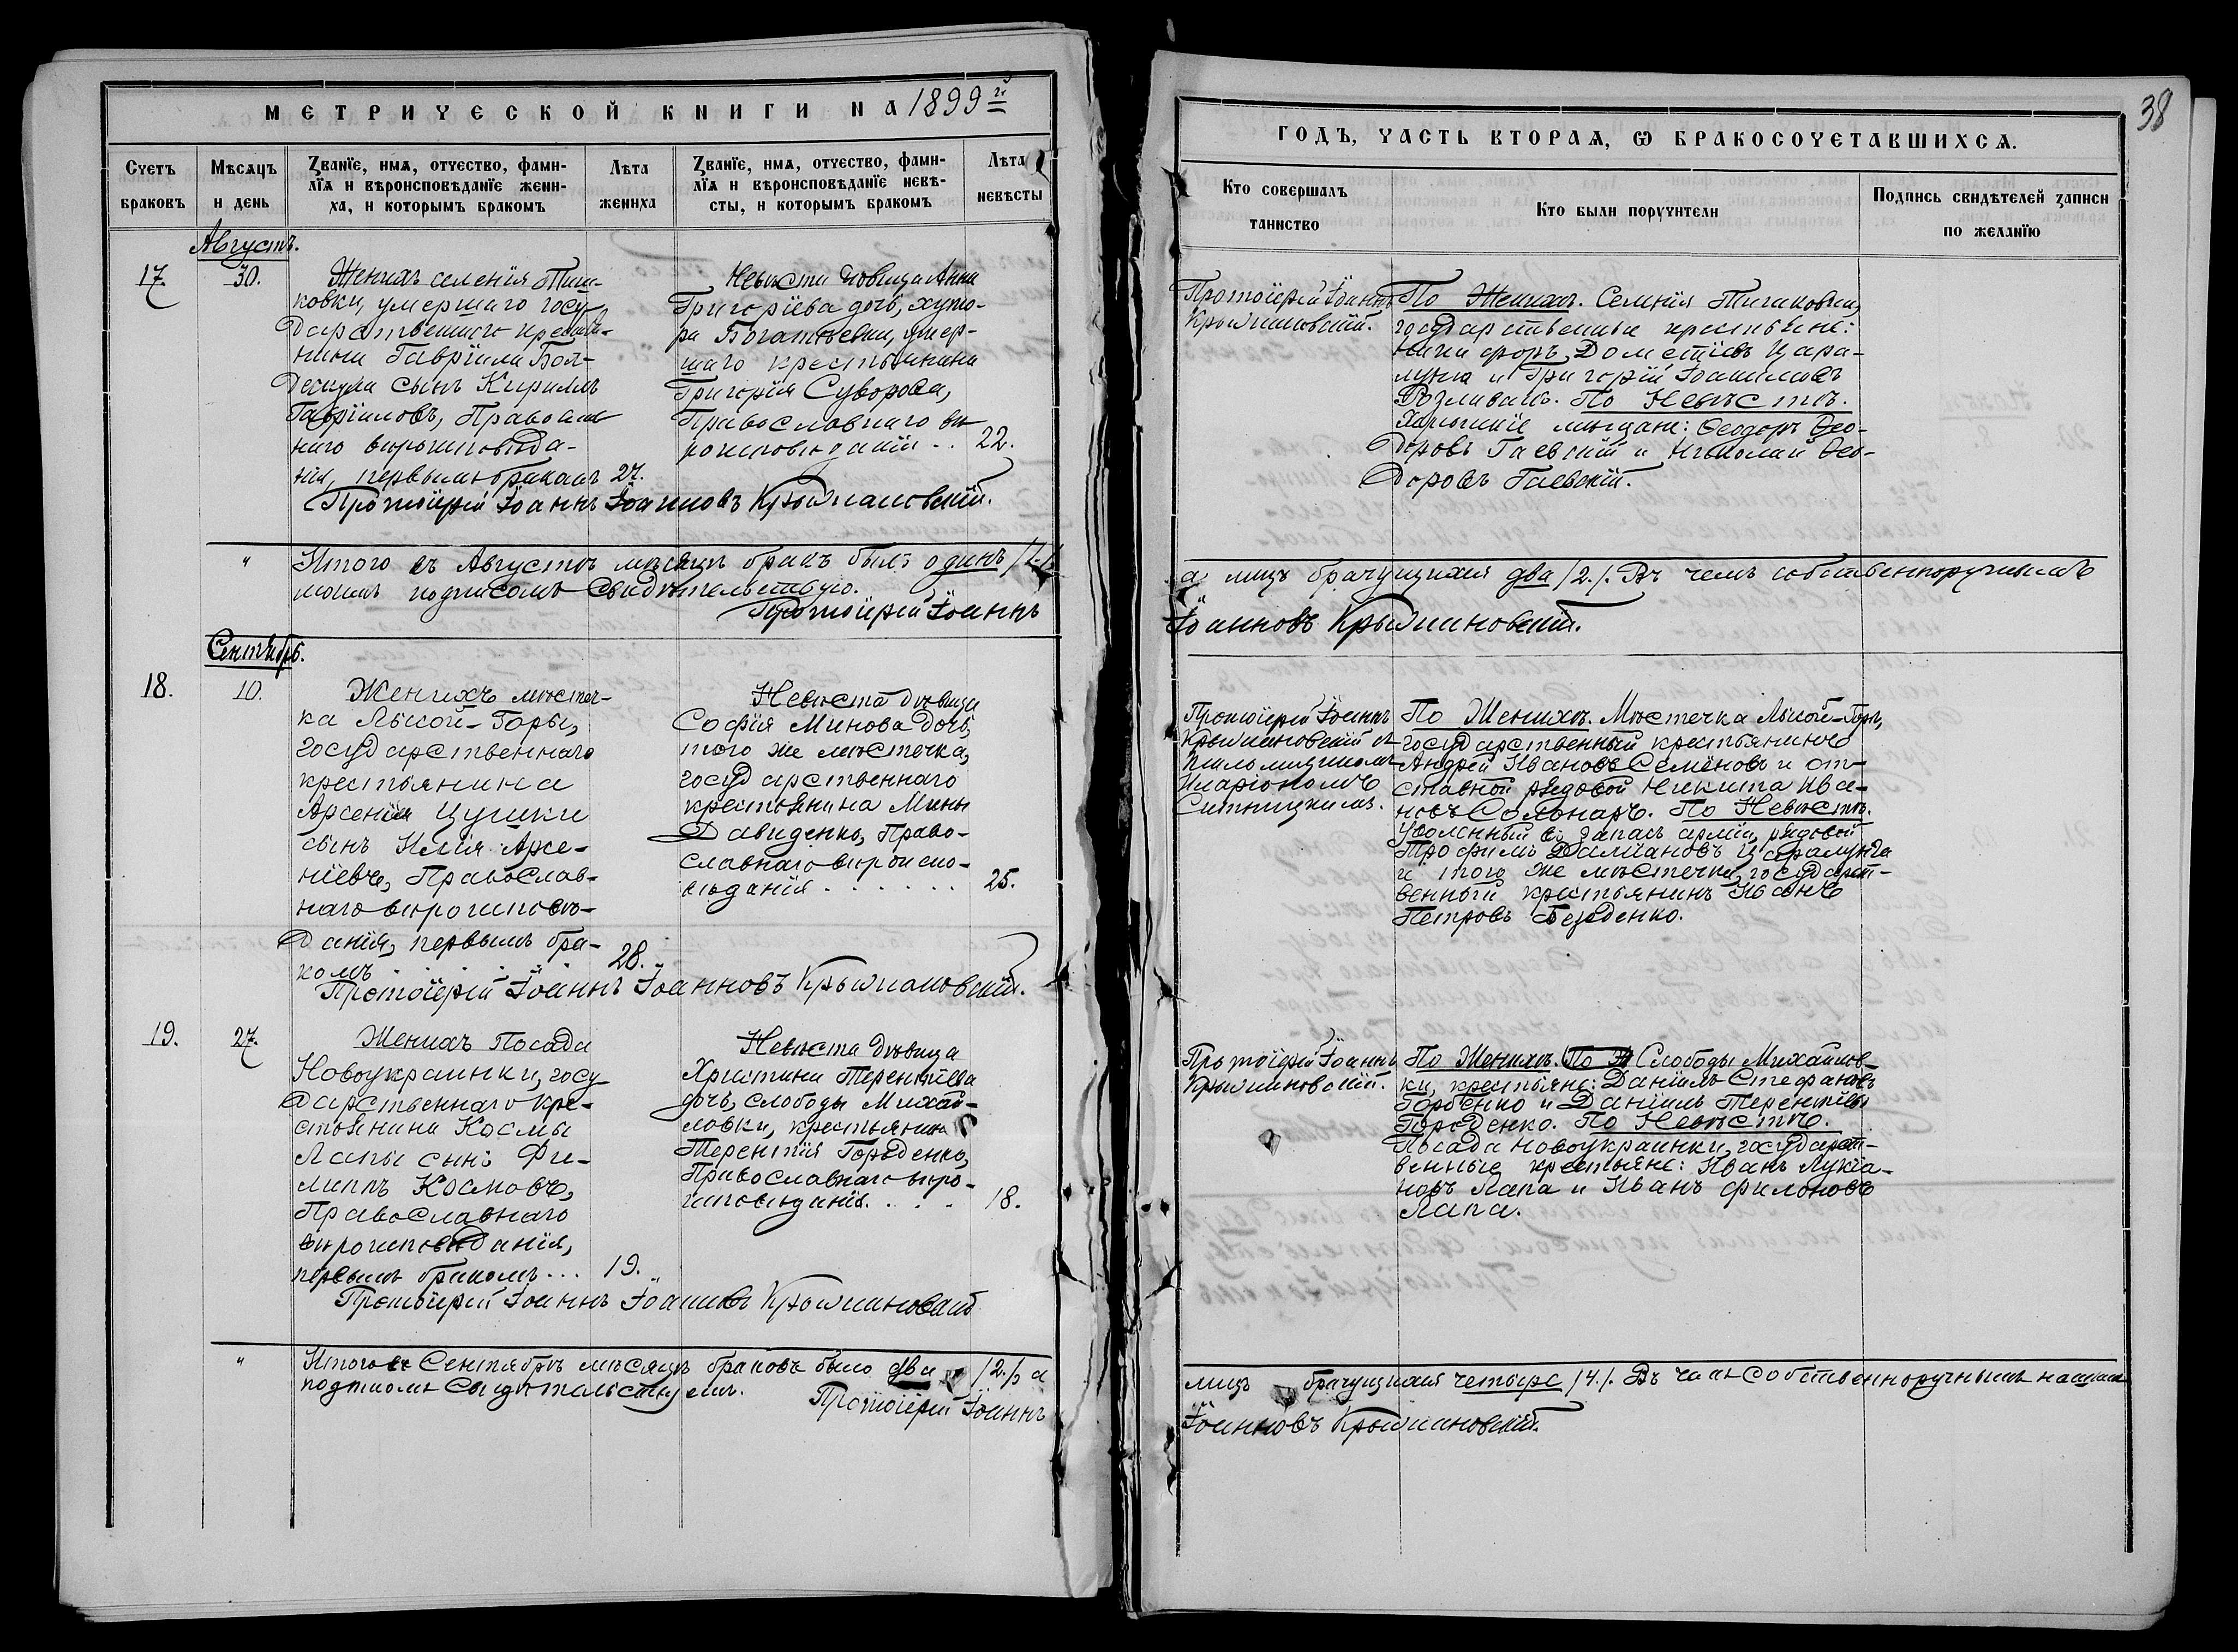 МЕТРИЧЕСКОЙ КНИГИ НА 1899 й
Счетъ браковъ
Мѣсяцъ и день
Званїе, имя, отчество, фами-
лїя и вѣроисповѣданїе жени-
ха, и которымъ бракомъ
Лѣта жениха
Званїе, имя, отчество, фами-
лїя и вѣроисповѣданїе невѣ-
сты, и которымъ бракомъ
Лѣта невѣсты
Августъ.
17.
30.
Женихъ селенія Тиш-
ковки, умершаго госу-
дарственнаго крестья-
нина Гавріила Бол-
дескула сынъ Кириллъ
Гавріиловъ, Православ
наго вѣроисповѣда-
нія, первымъ бракомъ
27.
Невѣста дѣвица Анна
Григоріева дочь, хуто-
ра Богатьевки, умер-
шаго крестьянина
Григорія Суворова,
Православнаго вѣ
роисповѣданія . .
22.
Протоіерей Іоаннъ Іоанновъ Крыжановскій.
" Итого въ Августѣ мѣсяцѣ бракъ былъ одинъ /1./
моимъ подписомъ свидѣтельствую.
Протоіерей Іоаннъ
Сентябрь.
18.
10.
Женихъ мѣстеч-
ка Лысой-Горы,
государственнаго
крестьянина
Арсенія Цушки
сынъ Илія Арсе-
ніевъ, Православ-
наго вѣроисповѣ-
данія, первымъ бра-
комъ . . . . .
28.
Невѣста дѣвица
Софія Минова дочь,
того же мѣстечка,
государственнаго
крестьянина Мины
Давиденко, Право-
славнаго вѣроиспо-
вѣданія . . . . . .
25.
Протоіерей Іоаннъ Іоанновъ Крыжановскій.
19.
27.
Женихъ Посада
Новоукраинки, госу
дарственнаго кре-
стьянина Космы
Лапы сынъ Фи-
липпъ Космовъ,
Православнаго
вѣроисповѣданія,
первымъ бракомъ . . .
19.
Невѣста дѣвица
Христина Терентіева
дочь, слободы Михай-
ловки, крестьянина
Терентія Гориденко,
Православнаго вѣро-
исповѣданія . . . .
18.
Протоіерей Іоаннъ Іоанновъ Крыжановскій
" Итого въ Сентябрѣ мѣсяцѣ браковъ было два /2./, а
подписомъ свидѣтельствуемъ.
Протоіерей Іоаннъ
38
ГОДЪ, ЧАСТЬ ВТОРАЯ, Ѡ БРАКОСОЧЕТАВШИХСЯ.
Кто совершалъ таинство
Кто были поручители
Подпись свидѣтелей записи по желанїю
Протоіерей Іоаннъ
Крыжановскій.
По Женихѣ. Селенія Тишковки,
государственные крестьяне:
Никифоръ Дометіевъ Цара-
лунга и Григорій
Розливанъ. По Невѣстѣ.
мѣщане: Ѳеодоръ Ѳео-
доровъ Гаевскій и Николай Ѳео-
доровъ Гаевскій.
а лицъ брачущихся два /2./. Въ чемъ собственноручнымъ
Іоанновъ Крыжановскій.
Протоіерей Іоаннъ
Крыжановскій съ
псаломщикомъ
Иларіономъ
Ситницкимъ.
По Женихѣ. Мѣстечка Лысой-Горы,
государственный крестьянинъ
Андрей Ивановъ Семёновъ и от-
ставной рядовой Никита Ива-
новъ Солонарь. По Невѣстѣ.
Уволенный въ запасъ арміи, рядовой
Трофимъ Даміановъ Царалунга
и того же мѣстечка, государст-
венный крестьянинъ Иванъ
Петровъ
Протоіерей Іоаннъ
Крыжановскій.
По Женихѣ. По Н Слободы Михайлов-
ки, крестьяне: Даніилъ Стефановъ
Горбенко и Даніилъ Терентіевъ
Гориденко. По Невѣстѣ.
Посада Новоукраинки, государст-
венные крестьяне: Иванъ Лукіа-
новъ Лапа и Иванъ Филоновъ
Лапа.
лицъ брачущихся четыре /4./. Въ чемъ собственноручнымъ нашимъ
Іоанновъ Крыжановскій.